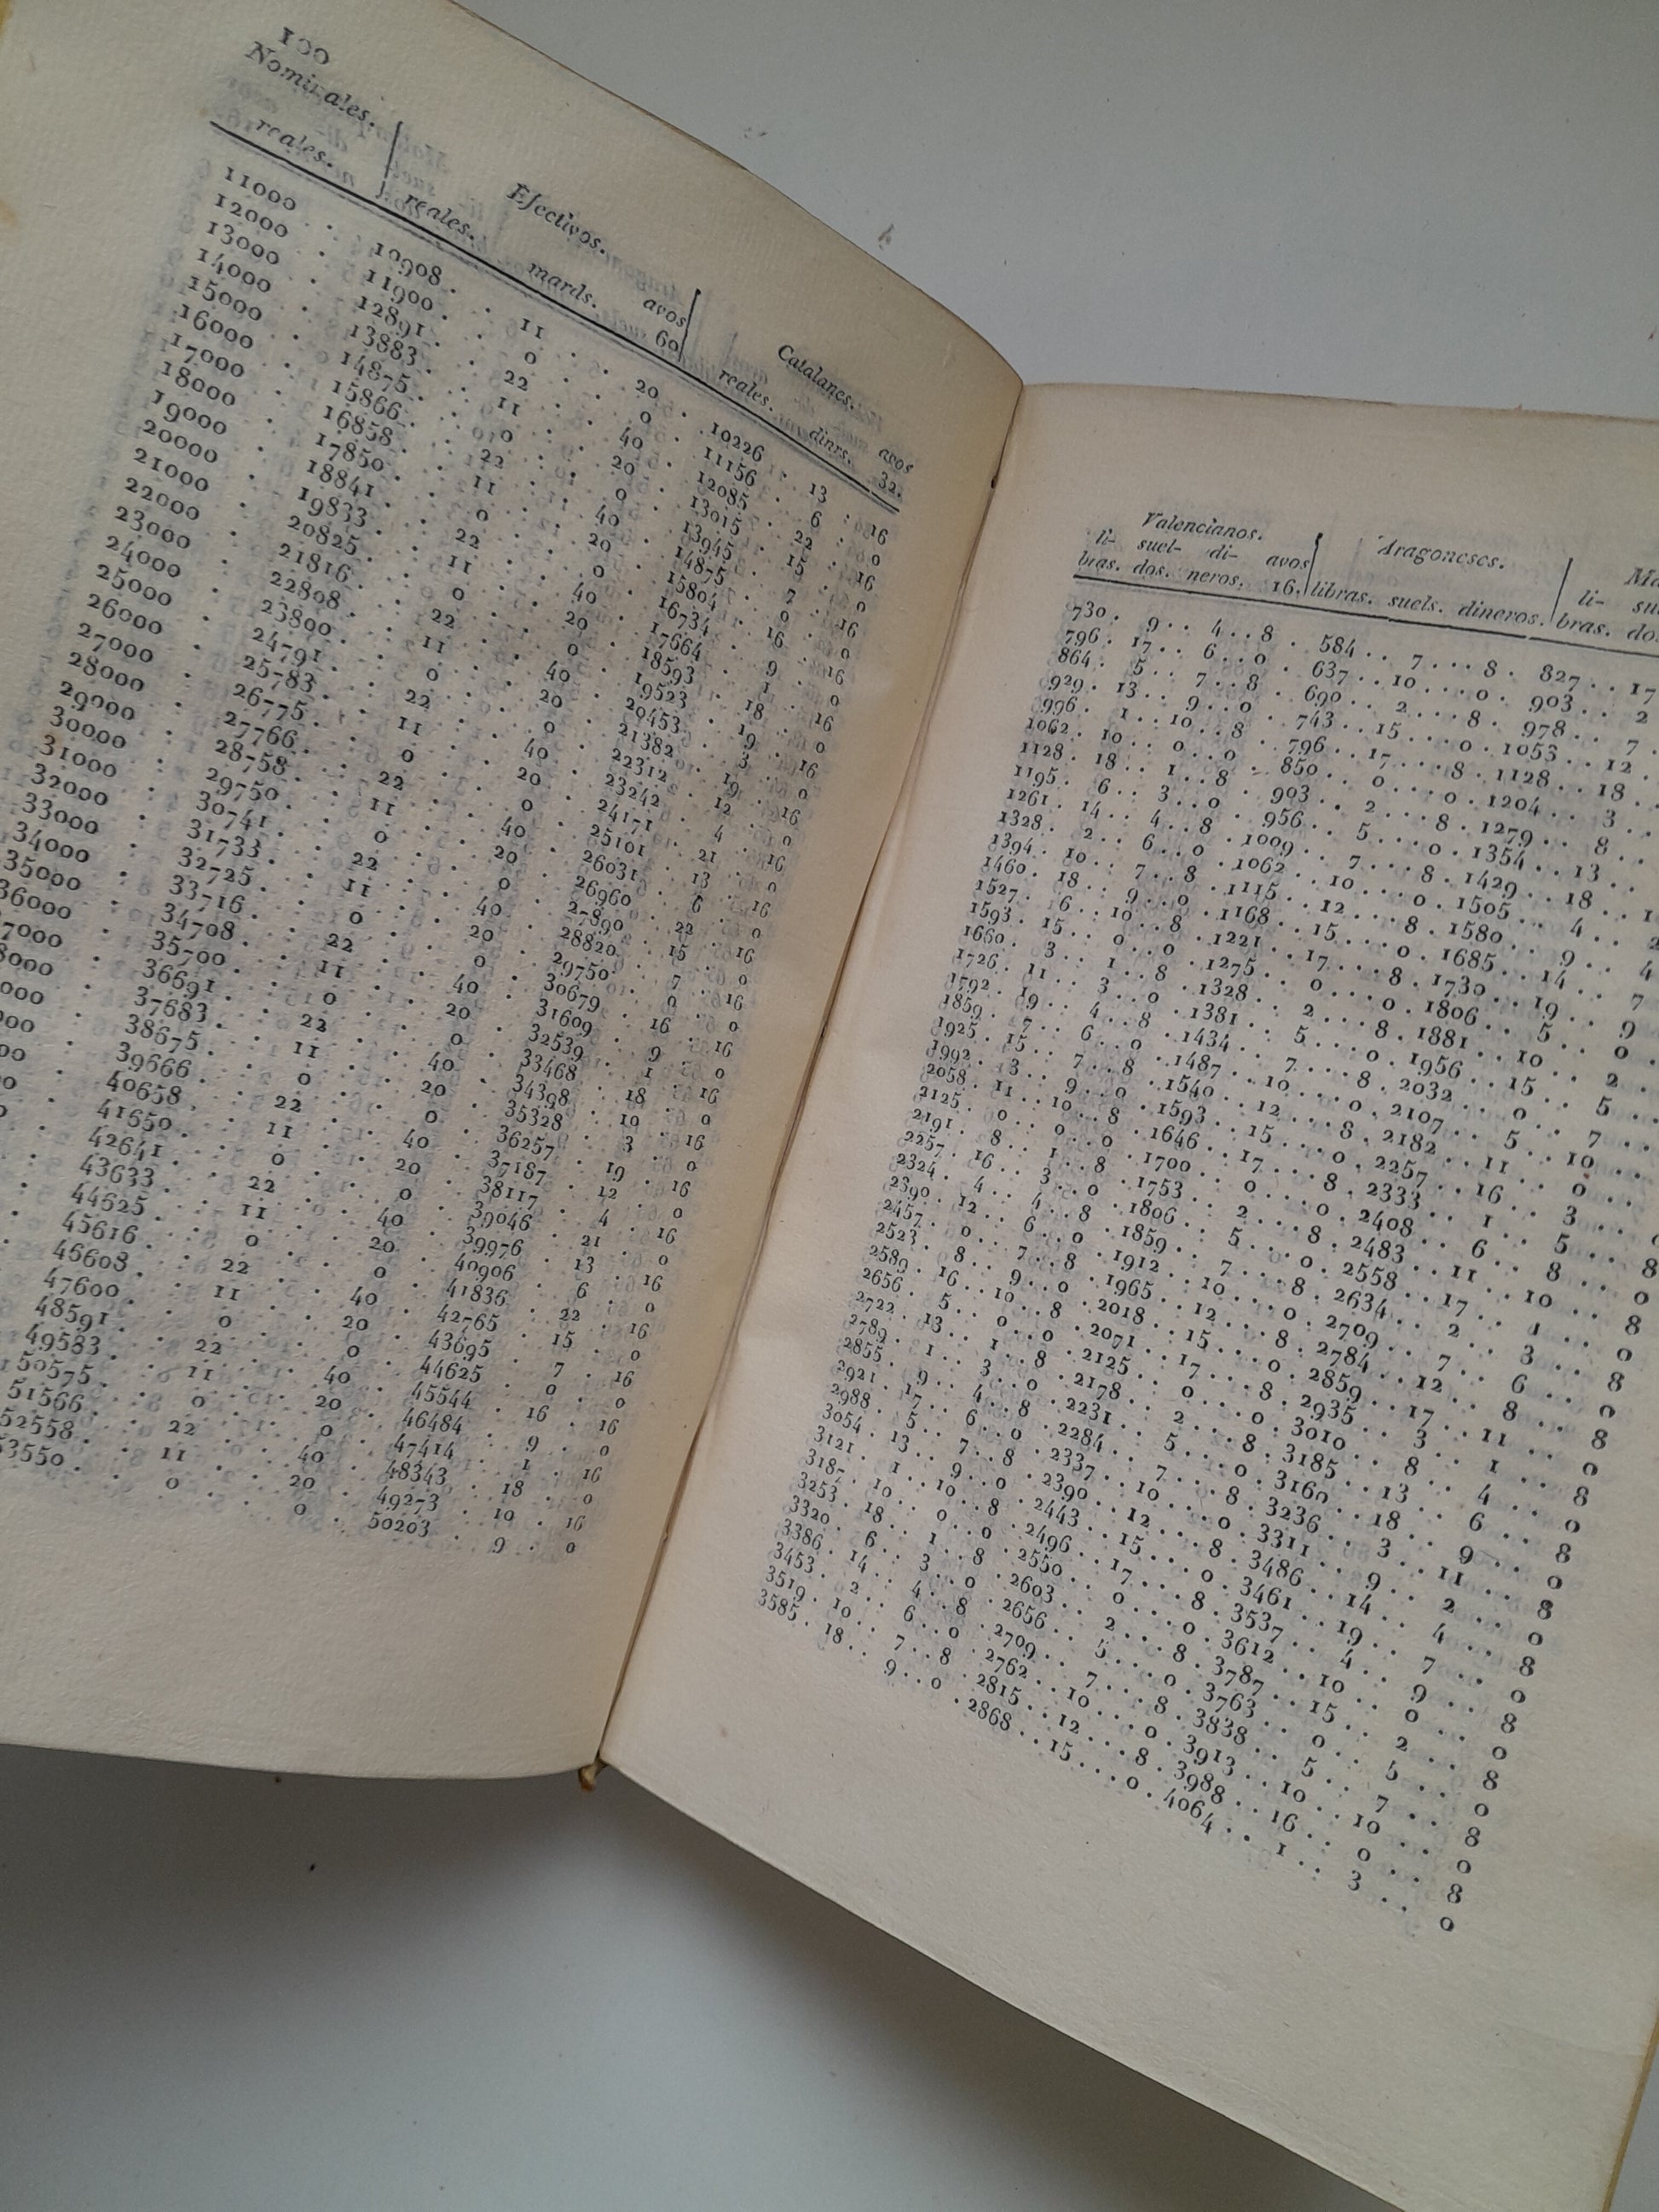 100
Nominales. Efectivos. Catalanes.
reales. reales. mards. avos 60 reales. dinrs. avos 32.
11000 . 10908 . 11 . 20 . 10226 . 13 . 16
12000 . 11900 . 0 . 0 . 11156 . 6 . 0
13000 . 12891 . 22 . 40 . 12085 . 22 . 16
14000 . 13883 . 11 . 20 . 13015 . 15 . 0
15000 . 14875 . 0 . 0 . 13945 . 7 . 16
16000 . 15866 . 22 . 40 . 14875 . 0 . 0
17000 . 16858 . 11 . 20 . 15804 . 16 . 16
18000 . 17850 . 0 . 0 . 16734 . 9 . 0
19000 . 18841 . 22 . 40 . 17664 . 1 . 16
20000 . 19833 . 11 . 20 . 18593 . 18 . 0
21000 . 20825 . 0 . 0 . 19523 . 19 . 16
22000 . 21816 . 22 . 40 . 20453 . 3 . 0
23000 . 22808 . 11 . 20 . 21382 . 19 . 16
24000 . 23800 . 0 . 0 . 22312 . 12 . 0
25000 . 24791 . 22 . 40 . 23242 . 4 . 16
26000 . 25783 . 11 . 20 . 24171 . 21 . 0
27000 . 26775 . 0 . 0 . 25101 . 13 . 16
28000 . 27766 . 22 . 40 . 26031 . 6 . 0
29000 . 28758 . 11 . 20 . 26960 . 22 . 16
30000 . 29750 . 0 . 0 . 27890 . 15 . 0
31000 . 30741 . 22 . 40 . 28820 . 7 . 16
32000 . 31733 . 11 . 20 . 29750 . 0 . 0
33000 . 32725 . 0 . 0 . 30679 . 16 . 16
34000 . 33716 . 22 . 40 . 31609 . 9 . 0
35000 . 34708 . 11 . 20 . 32539 . 1 . 16
36000 . 35700 . 0 . 0 . 33468 . 18 . 0
7000 . 36691 . 22 . 40 . 34398 . 10 . 16
8000 . 37683 . 11 . 20 . 35328 . 3 . 0
000 . 38675 . 0 . 0 . 36257 . 19 . 16
000 . 39666 . 22 . 40 . 37187 . 12 . 0
00 . 40658 . 11 . 20 . 38117 . 4 . 16
0 . 41650 . 0 . 0 . 39046 . 21 . 0
42641 . 22 . 40 . 39976 . 13 . 16
43633 . 11 . 20 . 40906 . 6 . 0
44625 . 0 . 0 . 41836 . 22 . 16
45616 . 22 . 40 . 42765 . 15 . 0
46608 . 11 . 20 . 43695 . 7 . 16
47600 . 0 . 0 . 44625 . 0 . 0
48591 . 22 . 40 . 45544 . 16 . 16
49583 . 11 . 20 . 46484 . 9 . 0
50575 . 0 . 0 . 47414 . 1 . 16
51566 . 22 . 40 . 48343 . 18 . 0
52558 . 11 . 20 . 49273 . 10 . 16
53550 . 0 . 0 . 50203 . 9 . 0
Valencianos. Aragoneses. Ma
li- suel- di- avos li- su
bras. dos. neros. 16. libras. suels. dineros. bras. do
730 . 9 . . 4 . . 8 . 584 . . 7 . . . 8 . 827 . . 17
796 . 17 . . 6 . . 0 . 637 . . 10 . . . 0 . 903 . . 2
864 . 5 . . 7 . . 8 . 690 . . 2 . . . 8 . 978 . . 7
929 . 13 . . 9 . . 0 . 743 . . 15 . . . 0 . 1053 . . 12
996 . 1 . . 10 . . 8 . 796 . . 17 . . . 8 . 1128 . . 18
1062 . 10 . . 0 . . 0 . 850 . . 0 . . . 0 . 1204 . . 3
1128 . 18 . . 1 . . 8 . 903 . . 2 . . . 8 . 1279 . . 8
1195 . 6 . . 3 . . 0 . 956 . . 5 . . . 0 . 1354 . . 13
1261 . 14 . . 4 . . 8 . 1009 . . 7 . . . 8 . 1429 . . 18 . . 1
1328 . 2 . . 6 . . 0 . 1062 . . 10 . . . 0 . 1505 . . 4 . . 2
1394 . 10 . . 7 . . 8 . 1115 . . 12 . . . 8 . 1580 . . 9 . . 4
1460 . 18 . . 9 . . 0 . 1168 . . 15 . . . 0 . 1685 . . 14 . . 7
1527 . 6 . . 10 . . 8 . 1221 . . 17 . . . 8 . 1730 . . 19 . . 9
1593 . 15 . . 0 . . 0 . 1275 . . 0 . . . 0 . 1806 . . 5 . . 0
1660 . 3 . . 1 . . 8 . 1328 . . 2 . . . 8 . 1881 . . 10 . . 2
1726 . 11 . . 3 . . 0 . 1381 . . 5 . . . 0 . 1956 . . 15 . . 5
1792 . 19 . . 4 . . 8 . 1434 . . 7 . . . 8 . 2032 . . 0 . . 7
1859 . 7 . . 6 . . 0 . 1487 . . 10 . . . 0 . 2107 . . 5 . . 10
1925 . 15 . . 7 . . 8 . 1540 . . 12 . . . 8 . 2182 . . 11 . . 0
1992 . 3 . . 9 . . 0 . 1593 . . 15 . . . 0 . 2257 . . 16 . . 3 . . 0
2058 . 11 . . 10 . . 8 . 1646 . . 17 . . . 8 . 2333 . . 1 . . 5 . . 8
2125 . 0 . . 0 . . 0 . 1700 . . 0 . . . 0 . 2408 . . 6 . . 8 . . 0
2191 . 8 . . 1 . . 8 . 1753 . . 2 . . . 8 . 2483 . . 11 . . 10 . . 8
2257 . 16 . . 3 . . 0 . 1806 . . 5 . . . 0 . 2558 . . 17 . . 1 . . 0
2324 . 4 . . 4 . . 8 . 1859 . . 7 . . . 8 . 2634 . . 2 . . 3 . . 8
2390 . 12 . . 6 . . 0 . 1912 . . 10 . . . 0 . 2709 . . 7 . . 6 . . 0
2457 . 0 . . 7 . . 8 . 1965 . . 12 . . . 8 . 2784 . . 12 . . 8 . . 8
2523 . 8 . . 9 . . 0 . 2018 . . 15 . . . 0 . 2859 . . 17 . . 11 . . 0
2589 . 16 . . 10 . . 8 . 2071 . . 17 . . . 8 . 2935 . . 3 . . 1 . . 8
2656 . 5 . . 0 . . 0 . 2125 . . 0 . . . 0 . 3010 . . 8 . . 4 . . 0
2722 . 13 . . 1 . . 8 . 2178 . . 2 . . . 8 . 3185 . . 13 . . 6 . . 8
2789 . 1 . . 3 . . 0 . 2231 . . 5 . . . 0 . 3160 . . 18 . . 9 . . 0
2855 . 9 . . 4 . . 8 . 2284 . . 7 . . . 8 . 3236 . . 3 . . 11 . . 8
2921 . 17 . . 6 . . 0 . 2337 . . 10 . . . 0 . 3311 . . 9 . . 2 . . 0
2988 . 5 . . 7 . . 8 . 2390 . . 12 . . . 8 . 3486 . . 14 . . 4 . . 8
3054 . 13 . . 9 . . 0 . 2443 . . 15 . . . 0 . 3461 . . 19 . . 7 . . 0
3121 . 1 . . 10 . . 8 . 2496 . . 17 . . . 8 . 3537 . . 4 . . 9 . . 8
3187 . 10 . . 0 . . 0 . 2550 . . 0 . . . 0 . 3612 . . 10 . . 0 . . 0
3253 . 18 . . 1 . . 8 . 2603 . . 2 . . . 8 . 3787 . . 15 . . 2 . . 8
3320 . 6 . . 3 . . 0 . 2656 . . 5 . . . 0 . 3763 . . 0 . . 5 . . 0
3386 . 14 . . 4 . . 8 . 2709 . . 7 . . . 8 . 3838 . . 5 . . 7 . . 8
3453 . 2 . . 6 . . 0 . 2762 . . 10 . . . 0 . 3913 . . 10 . . 10 . . 0
3519 . 10 . . 7 . . 8 . 2815 . . 12 . . . 8 . 3988 . . 16 . . 0 . . 8
3585 . 18 . . 9 . . 0 . 2868 . . 15 . . . 0 . 4064 . . 1 . . 3 . . 0